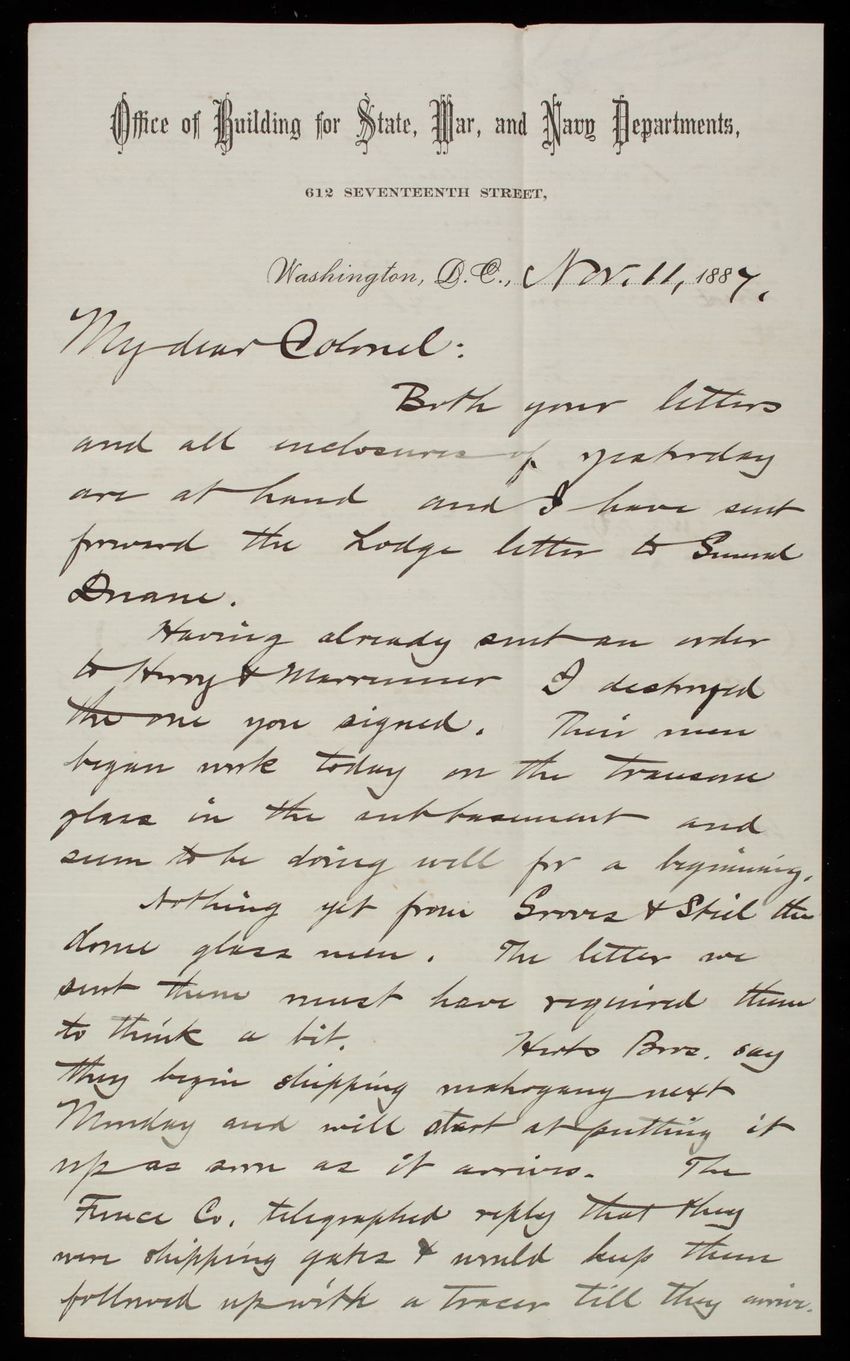 Office of Building for State, War, and Navy Departments,
612 SEVENTEENTH STREET,
Washington, D.C., Nov. 11, 1887.
My dear Colonel:
Both your letters
and all enclosures of yesterday
are at hand and I have sent
forward the Lodge letter to General
Duane.
Having already sent an order
to &
I destroyed
the one you signed. Their men
began work today on the transom
glass in the subbasement and
seem to be doing well for a beginning.
Nothing yet from Groves & Steil the
dome glass men. The letter we
sent them must have required them
to think a bit. Herts Bros. say
they begin shipping mahogany next
Monday and will start at putting it
up as soon as it arrives. The
Fence Co. telegraphed reply that they
were shipping gates & would keep them
followed up with a tracer till they arrive.